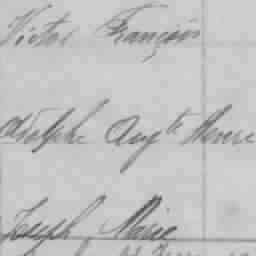 Victor François
Adolphe Aug te
Joseph Marie